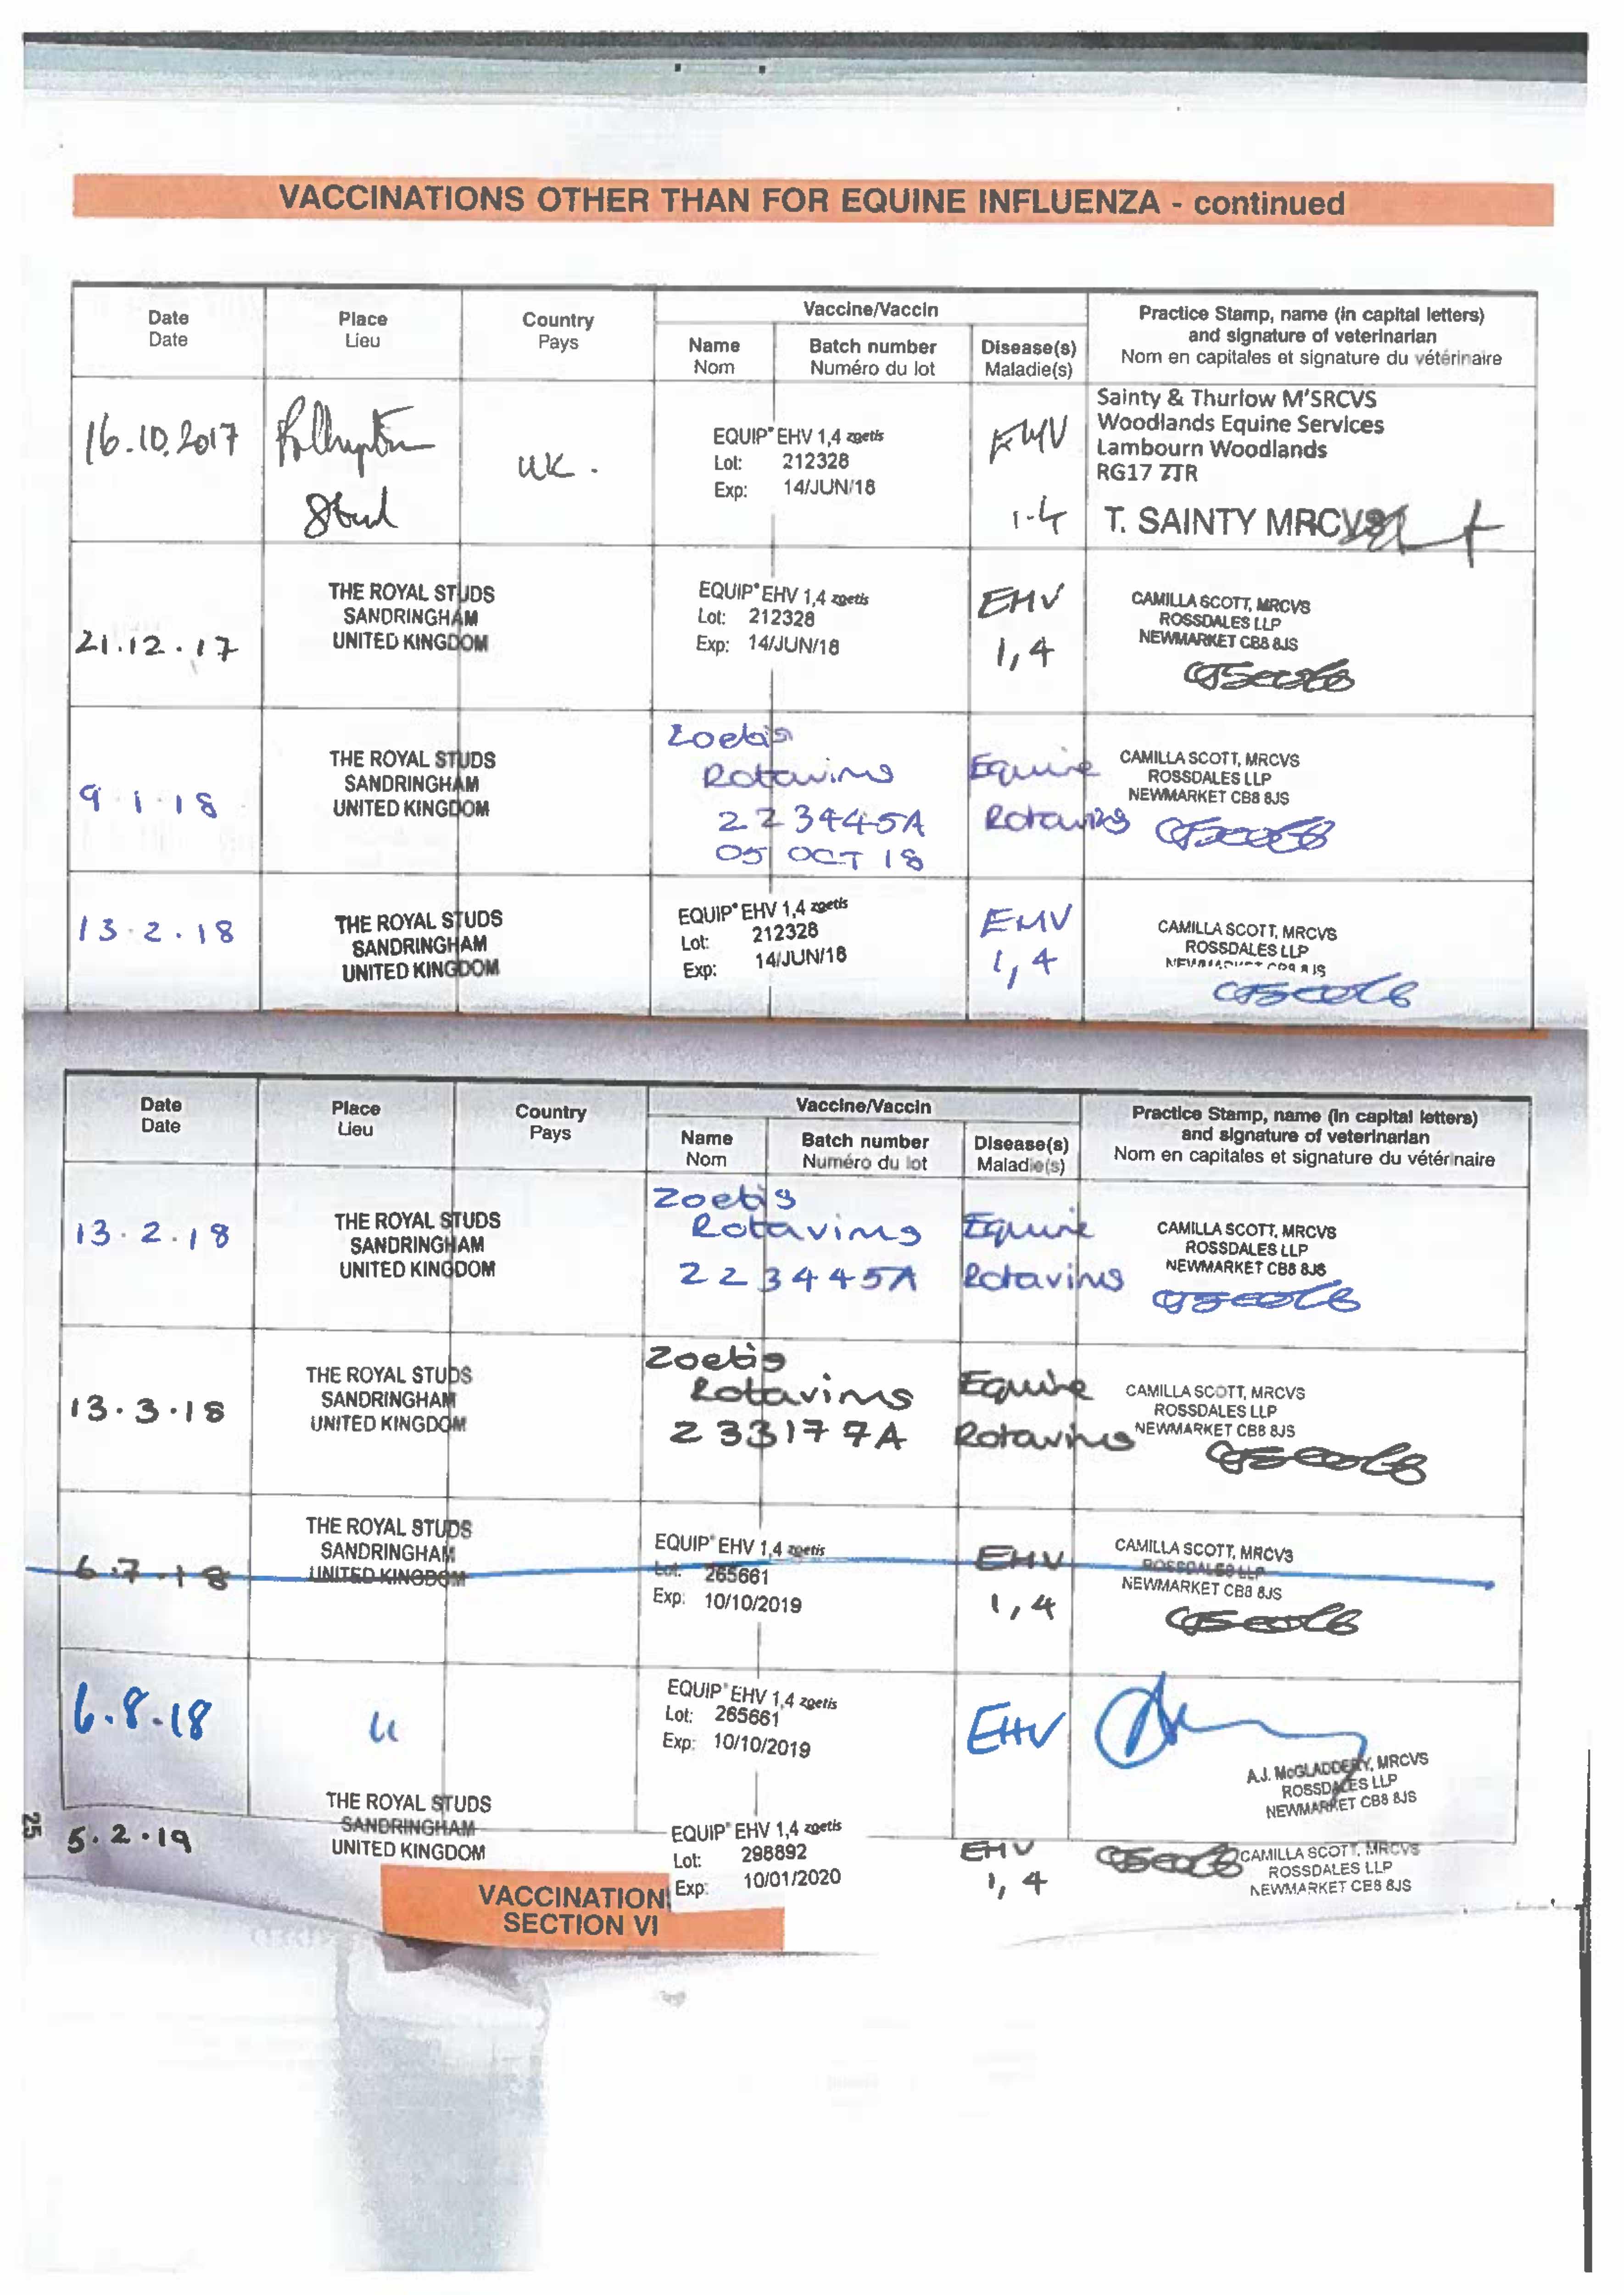 VACCINATIONS OTHER THAN FOR EQUINE INFLUENZA - continued
Date
Date
Place
Lieu
Country
Pays
Vaccine/Vaccin
Name
Nom
Batch number
Numéro du lot
Disease(s)
Maladie(s)
Practice Stamp, name (in capital letters)
and signature of veterinarian
Nom en capitales et signature du vétérinaire
16.10.2017
Stud
UK.
EQUIP® EHV 1,4 zoetis
Lot: 212328
Exp: 14/JUN/18
EHV
1.4
Sainty & Thurlow M'SRCVS
Woodlands Equine Services
Lambourn Woodlands
RG17 7TR
T. SAINTY MRCVS
21.12.17
THE ROYAL STUDS
SANDRINGHAM
UNITED KINGDOM
EQUIP® EHV 1,4 zoetis
Lot: 212328
Exp: 14/JUN/18
EHV
1,4
CAMILLA SCOTT, MRCVS
ROSSDALES LLP
NEWMARKET CB8 8JS
9.1.18
THE ROYAL STUDS
SANDRINGHAM
UNITED KINGDOM
Zoetis
Rotavirus
223445A
05 OCT 18
Equine
Rotavirus
CAMILLA SCOTT, MRCVS
ROSSDALES LLP
NEWMARKET CB8 8JS
13.2.18
THE ROYAL STUDS
SANDRINGHAM
UNITED KINGDOM
EQUIP® EHV 1,4 zoetis
Lot: 212328
Exp: 14/JUN/18
EHV
1,4
CAMILLA SCOTT, MRCVS
ROSSDALES LLP
NEWMARKET CB8 8JS
Date
Date
Place
Lieu
Country
Pays
Vaccine/Vaccin
Name
Nom
Batch number
Numéro du lot
Disease(s)
Maladie(s)
Practice Stamp, name (in capital letters)
and signature of veterinarian
Nom en capitales et signature du vétérinaire
13.2.18
THE ROYAL STUDS
SANDRINGHAM
UNITED KINGDOM
Zoetis
Rotavirus
223445A
Equine
Rotavirus
CAMILLA SCOTT, MRCVS
ROSSDALES LLP
NEWMARKET CB8 8JS
13.3.18
THE ROYAL STUDS
SANDRINGHAM
UNITED KINGDOM
Zoetis
Rotavirus
233177A
Equine
Rotavirus
CAMILLA SCOTT, MRCVS
ROSSDALES LLP
NEWMARKET CB8 8JS
6.7.18
THE ROYAL STUDS
SANDRINGHAM
UNITED KINGDOM
EQUIP® EHV 1,4 zoetis
Lot: 265661
Exp: 10/10/2019
EHV
1,4
CAMILLA SCOTT, MRCVS
ROSSDALES LLP
NEWMARKET CB8 8JS
6.8.18
"
EQUIP® EHV 1,4 zoetis
Lot: 265661
Exp: 10/10/2019
EHV
A.J. McGLADDERY, MRCVS
ROSSDALES LLP
NEWMARKET CB8 8JS
25
5.2.19
THE ROYAL STUDS
SANDRINGHAM
UNITED KINGDOM
EQUIP® EHV 1,4 zoetis
Lot: 298892
Exp: 10/01/2020
EHV
1,4
CAMILLA SCOTT, MRCVS
ROSSDALES LLP
NEWMARKET CB8 8JS
VACCINATION
SECTION VI